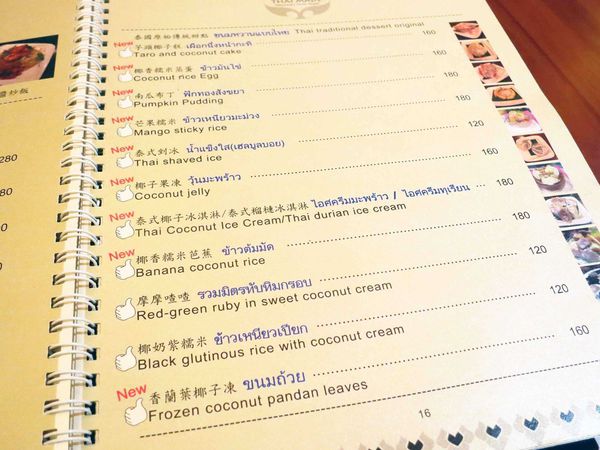 醬炒飯
280
280
泰國原始傳統甜點 ขนมหวานแบบไทย Thai traditional dessert original
New 芋頭椰子糕 เผือกนึ่งหน้ากะทิ 160
Taro and coconut cake
New 椰香糯米蒸蛋 ข้าวมันไข่ 160
Coconut rice Egg
New 南瓜布丁 ฟักทองสังขยา 180
Pumpkin Pudding
New 芒果糯米 ข้าวเหนียวมะม่วง 180
Mango sticky rice
New 泰式剉冰 น้ำแข็งใส(เฮลบูลบอย) 180
Thai shaved ice
New 椰子果凍 วุ้นมะพร้าว 160
Coconut jelly
New 泰式椰子冰淇淋/泰式榴槤冰淇淋 ไอศครีมมะพร้าว / ไอศครีมทุเรียน 180
Thai Coconut Ice Cream/Thai durian ice cream
New 椰香糯米芭蕉 ข้าวต้มมัด 180
Banana coconut rice
摩摩喳喳 รวมมิตรทับทิมกรอบ 120
Red-green ruby in sweet coconut cream
椰奶紫糯米 ข้าวเหนียวเปียก 120
Black glutinous rice with coconut cream
New 香蘭葉椰子凍 ขนมถ้วย 160
Frozen coconut pandan leaves
16